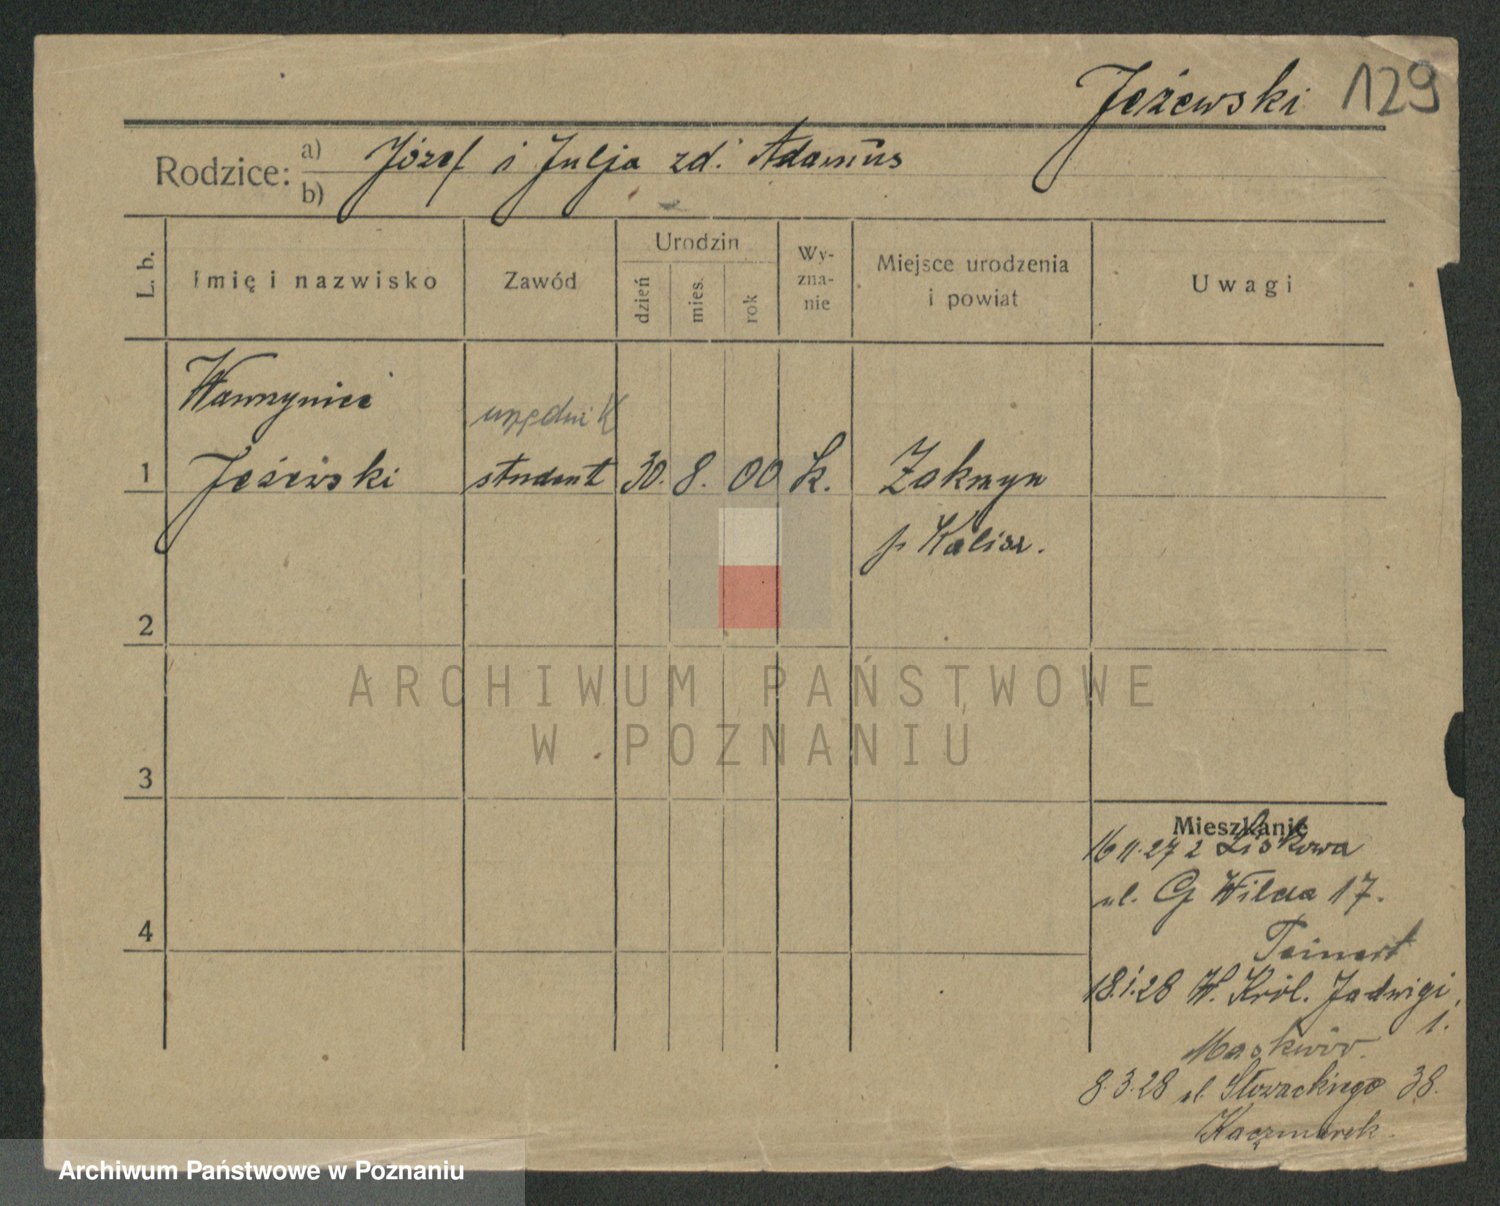 Jeżewski 129
Rodzice:
a) Józef i Julja zd. Adamus
b)
L. b.
Imię i nazwisko
Zawód
Urodzin
dzień
mies.
rok
Wy-
zna-
nie
Miejsce urodzenia
i powiat
Uwagi
Wawrzyniec
urzędnik
1 Jeżewski student 30. 8. 00 k. Zakrzyn
p Kalisz.
2
ARCHIWUM PAŃSTWOWE
W POZNANIU
3
Mieszkanie
16 11.27 z Liskowa
ul. G Wilda 17.
4
Teinert
18.1.28 W. Król. Jadwigi
1.
8.3.28 ul. Słowackiego 38.
Kaczmarek.
Archiwum Państwowe w Poznaniu